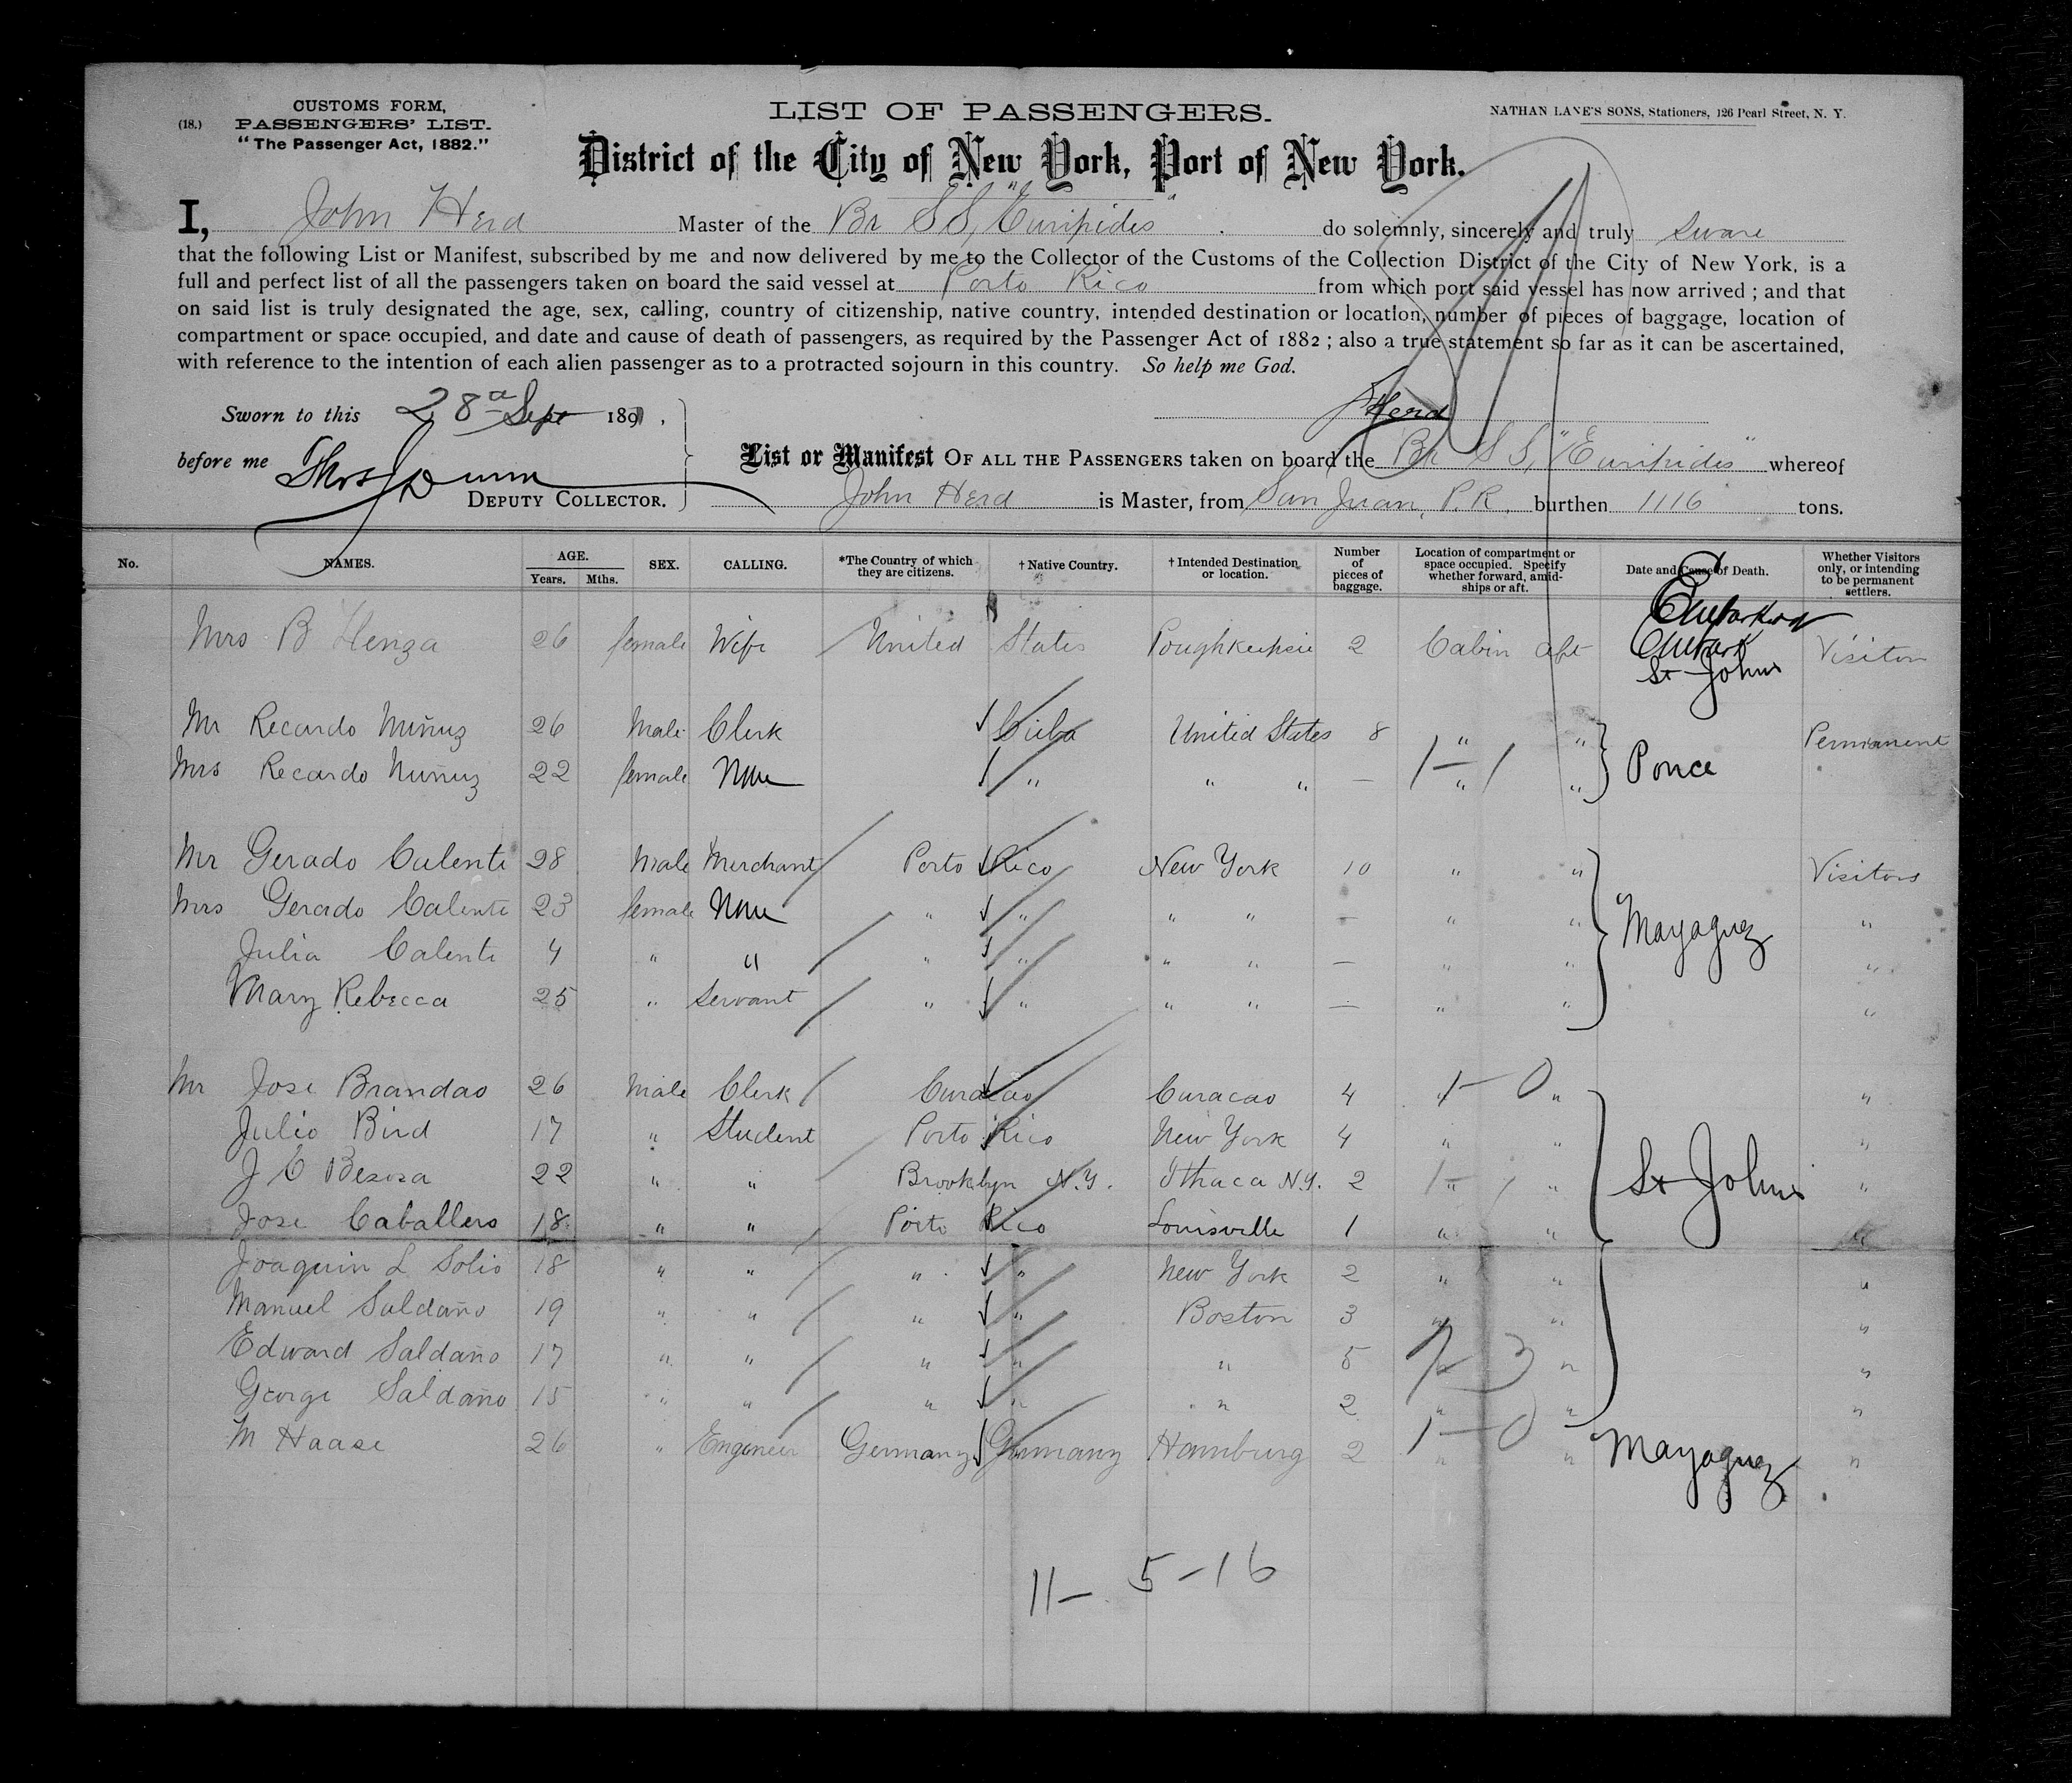 CUSTOMS FORM,
(18.) PASSENGERS' LIST.
"The Passenger Act, 1882."
LIST OF PASSENGERS.
NATHAN LANE'S SONS, Stationers, 126 Pearl Street, N. Y.
District of the City of New York, Port of New York.
I, John Herd Master of the Br S S, "Euripides" do solemnly, sincerely and truly sware
that the following List or Manifest, subscribed by me and now delivered by me to the Collector of the Customs of the Collection District of the City of New York, is a
full and perfect list of all the passengers taken on board the said vessel at Porto Rico from which port said vessel has now arrived ; and that
on said list is truly designated the age, sex, calling, country of citizenship, native country, intended destination or location, number of pieces of baggage, location of
compartment or space occupied, and date and cause of death of passengers, as required by the Passenger Act of 1882 ; also a true statement so far as it can be ascertained,
with reference to the intention of each alien passenger as to a protracted sojourn in this country. So help me God.
Sworn to this 28 Sept 189 ,
J Herd
before me Thos J Dunn
DEPUTY COLLECTOR.
List or Manifest OF ALL THE PASSENGERS taken on board the Br S S, "Euripides" whereof
John Herd is Master, from San Juan, P.R. burthen 1116 tons.
No. NAMES. AGE. Years. Mths. SEX. CALLING. *The Country of which they are citizens. † Native Country. † Intended Destination or location. Number of pieces of baggage. Location of compartment or space occupied. Specify whether forward, amidships or aft. Date and Cause of Death. Whether Visitors only, or intending to be permanent settlers.
Embarked
Mrs B Henza 26 female Wife United States Poughkeepsie 2 Cabin aft Embark Visitor
St Johns
Mr Recardo Nuñuz 26 Male Clerk Cuba United States 8 " " Permanent
Mrs Recardo Nuñuz 22 female None " " " — " " Ponce
Mr Gerado Calenti 28 Male Merchant Porto Rico New York 10 " " Visitors
Mrs Gerado Calenti 23 female None " " " " — " " Mayaguez "
Julia Calenti 4 " " " " " " — " " "
Mary Rebecca 25 " Servant " " " " — " " "
Mr Jose Brandao 26 Male Clerk Curacao Curacao 4 1 - 0 " "
Julio Bird 17 " Student Porto Rico New York 4 " " "
J C Besosa 22 " " Brooklyn N.Y. Ithaca N.Y. 2 1 - 1 " " St Johns "
Jose Caballero 18 " " Porto Rico Louisville 1 " " "
Joaquin L Solis 18 " " " " New York 2 " " "
Manuel Saldaño 19 " " " " Boston 3 " " "
Edward Saldaño 17 " " " " " 5 " 3 " "
George Saldaño 15 " " " " " 2 " " "
M Haase 26 " Engineer Germany Germany Hamburg 2 1 - 0 " " Mayaguez "
11 - 5 - 16